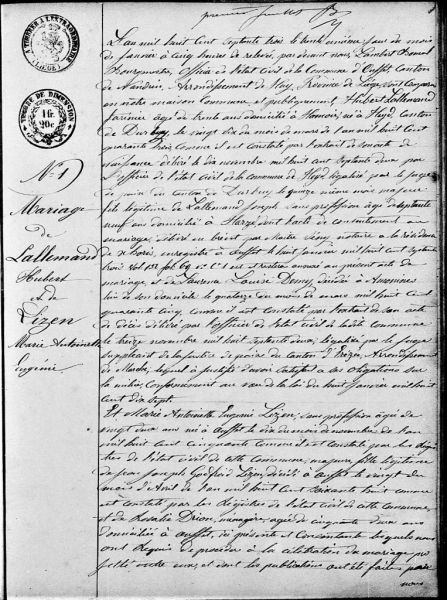 premier feuillet
A TIMBRER A L'EXTRAORDINAIRE
(LIÈGE)
TIMBRE DE DIMENSION
1 fr.
20c
N° 1
Mariage
de
Lallemand
Hubert
et de
Lizen
Marie Antoinette
Eugénie
L'an mil huit cent septante trois, le trente unième jour du mois
de janvier à cinq heures de relevée, par devant nous Lambert
Bourgmestre, Officier de l'état civil de la commune d'Ouffet, Canton
de Nandrin, Arrondissement de Huy, Province de Liège, sont comparus
en notre maison commune et publiquement, Hubert Lallemand
farinier âgé de trente ans domicilié à Hamoir, né à Heyd, Canton
de Durbuy, le vingt six du mois de mars de l'an mil huit cent
quarante trois comme il est constaté par l'extrait de son acte de
naissance délivré le dix novembre mil huit cent septante deux par
l'officier de l'état civil de la commune de Heyd, légalisé par le juge
de paix du Canton de Durbuy le quinze même mois, majeur
fils légitime de Lallemand Joseph sans profession âgé de septante
neuf ans domicilié à Harzé dont l'acte de consentement au
mariage, délivré en brevet par Maître notaire à la résidence
de enregistré à Ouffet le huit janvier mil huit cent septante
trois Vol 131 fol 69 est et restera annexé au présent acte de
mariage, et de Laurence Louise Demy, décédée à Awenines
lieu de son domicile le quatorze du mois de mars mil huit cent
quarante cinq, comme il est constaté par l'extrait de son acte
de décès délivré par l'officier de l'état civil de la dite commune
le treize novembre mil huit cent septante deux, légalisé par le juge
suppléant de la justice de paix du Canton d'Erezée, Arrondissement
de Marche, lequel a justifié d'avoir satisfait à ses obligations sur
la milice, conformément au vœu de la loi du huit janvier mil huit
cent dix sept.
Et Marie Antoinette Eugénie Lizen, sans profession âgée de
vingt deux ans née à Ouffet le dix du mois de novembre de l'an
mil huit cent cinquante comme il est constaté par les Regis-
tres de l'état civil de cette commune, majeure, fille légitime
de feu Joseph Godfroid Lizen, décédé à Ouffet le vingt du
mois d'Avril de l'an mil huit cent soixante huit comme
est constaté par les Registres de l'état civil de cette commune,
et de Rosalie Drion, ménagère, âgée de cinquante deux ans
domiciliée à Ouffet, ici présente et consentante, lesquels nous
ont requis de procéder à la célébration du mariage pro-
jetté entre eux, et dont les publications ont été faites par
nous